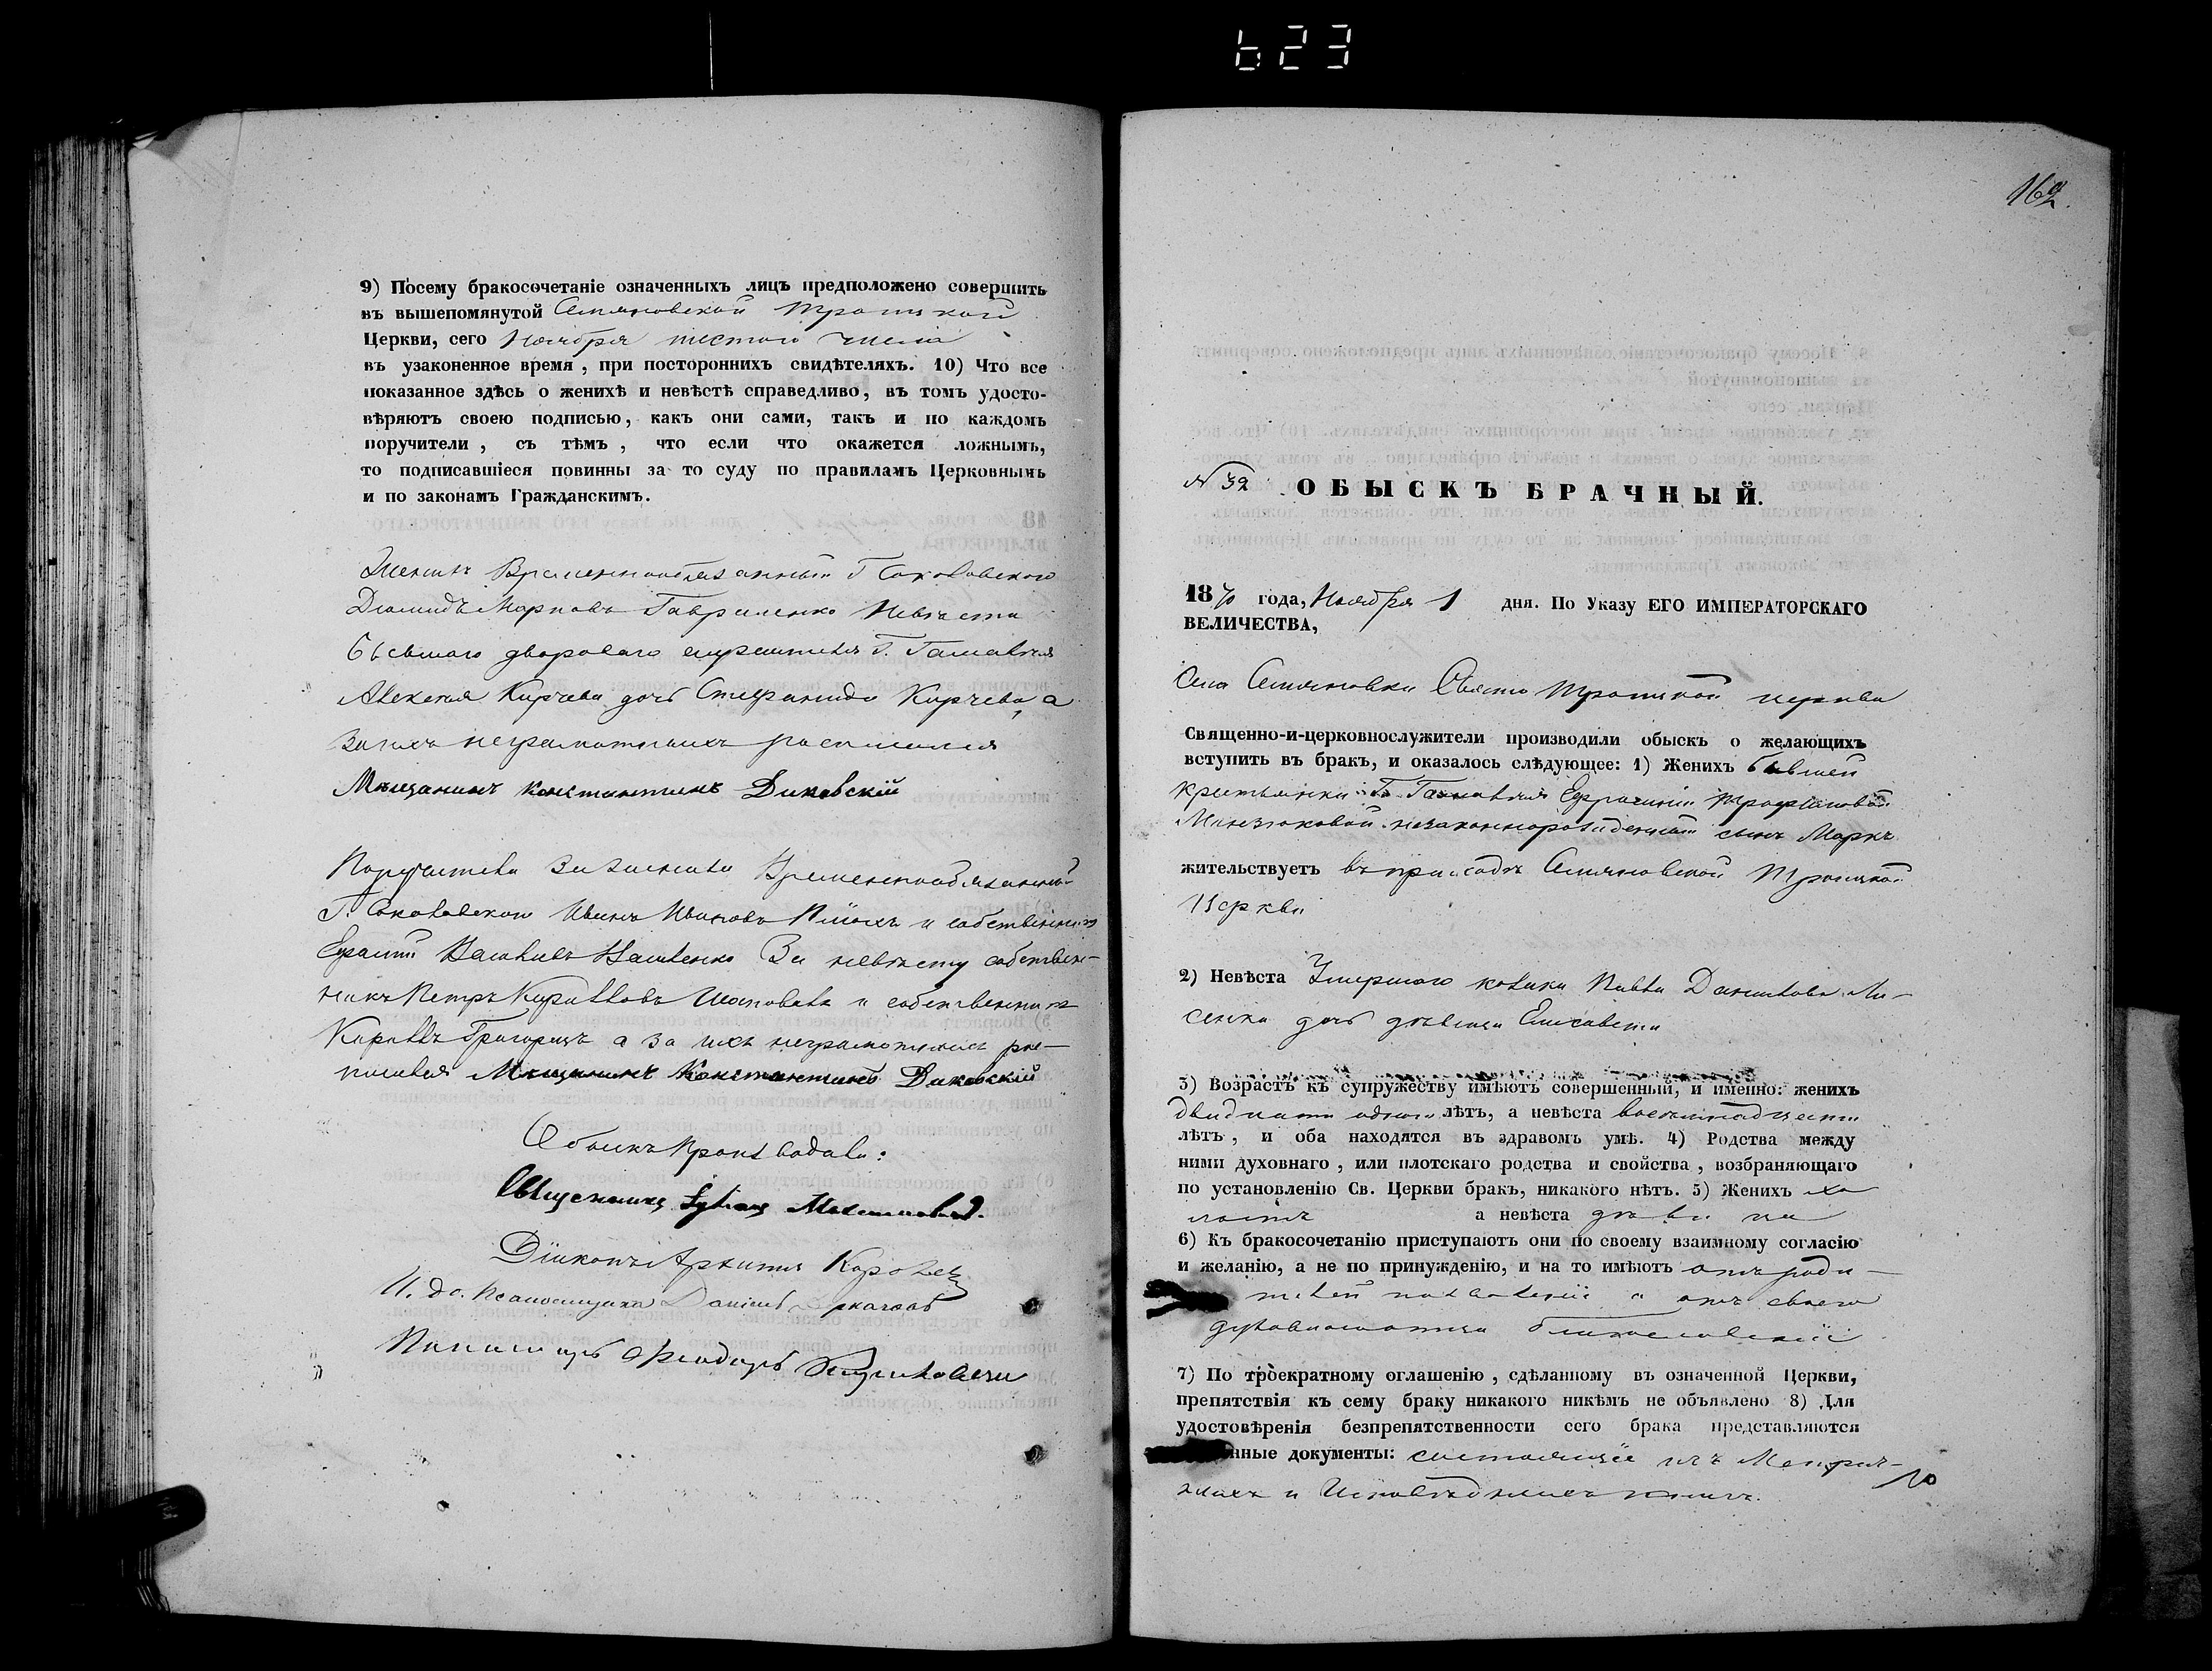 623
9) Посему бракосочетаніе означенныхъ лицъ предположено совершить
въ вышепомянутой Семяновской Троицкой
Церкви, сего Ноября шестого числа
въ узаконенное время, при постороннихъ свидѣтеляхъ. 10) Что все
показанное здѣсь о женихѣ и невѣстѣ справедливо, въ томъ удосто-
вѣряютъ своею подписью, какъ они сами, такъ и по каждомъ
поручители, съ тѣмъ, что если что окажется ложнымъ,
то подписавшіеся повинны за то суду по правиламъ Церковнымъ
и по законамъ Гражданскимъ.
Женихъ Временнообязанный Г Соколовского
Диомидъ Марковъ Гавриленко Невѣста
бывшаго двороваго Г. Галаваня
Алексея Кирчева дочь Стефанида Кирчева, а
за нихъ неграмотныхъ росписался
Мѣщанинъ Константинъ Диковскій
Поручители за жениха Временнообязанный
Г. Соколовского Иванъ Ивановъ и собственникъ
Василіевъ За невѣсту собствен-
никъ Петръ Кириловъ Шаповалъ и собственникъ
Кирилъ Григорецъ а за ихъ неграмотныхъ рос-
писался Мѣщанинъ Константинъ Диковскій
Обыскъ производили:
Священникъ
Діаконъ Королев
И. д. Псаломщика Даніилъ
Пономарь Феодоръ
162
№ 32 ОБЫСКЪ БРАЧНЫЙ.
1870 года, Ноября 1 дня. По Указу ЕГО ИМПЕРАТОРСКАГО
ВЕЛИЧЕСТВА,
Села Семяновки Свято Троицкой церкви
Священно-и-церковнослужители производили обыскъ о желающихъ
вступить въ бракъ, и оказалось слѣдующее: 1) Женихъ бывшей
крестьянки Г. Галаваня Ефросиніи Трофимовой
незаконнорожденный сынъ Маркъ
жительствуетъ въ приходѣ Семяновской Троицкой
Церкви
2) Невѣста Умершаго козака Павла Данилова Ли-
сенка дочь дѣвица Елисавета
3) Возрастъ къ супружеству имѣютъ совершенный, и именно: женихъ
двадцати одного лѣтъ, а невѣста восемнадцати
лѣтъ, и оба находятся въ здравомъ умѣ. 4) Родства между
ними духовнаго, или плотскаго родства и свойства, возбраняющаго
по установленію Св. Церкви бракъ, никакого нѣтъ. 5) Женихъ хо
лостъ а невѣста дѣвица
6) Къ бракосочетанію приступаютъ они по своему взаимному согласію
и желанію, а не по принужденію, и на то имѣютъ отъ роди-
телей позволеніе и отъ своего
духовного отца благословеніе
7) По троекратному оглашенію, сдѣланному въ означенной Церкви,
препятствія къ сему браку никакого никѣмъ не объявлено 8) Для
удостовѣренія безпрепятственности сего брака представляются
нные документы: состоящіе изъ Метрич-
ныхъ и Исповѣдныхъ книгъ.